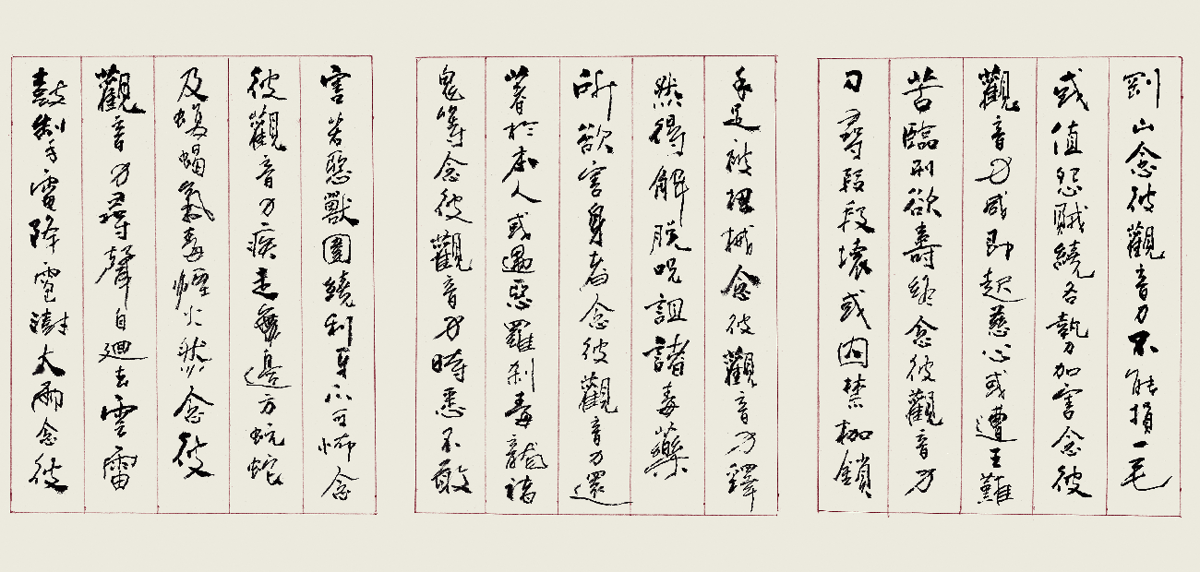 剛山念彼觀音力不能損一毛
或值怨賊繞各執刀加害念彼
觀音力咸即起慈心或遭王難
苦臨刑欲壽終念彼觀音力
刀尋段段壞或囚禁枷鎖
手足被杻械念彼觀音力釋
然得解脫呪詛諸毒藥
所欲害身者念彼觀音力還
著於本人或遇惡羅剎毒龍諸
鬼等念彼觀音力時悉不敢
害若惡獸圍繞利牙爪可怖念
彼觀音力疾走無邊方蚖蛇
及蝮蝎氣毒煙火然念彼
觀音力尋聲自迴去雲雷
鼓掣電降雹澍大雨念彼